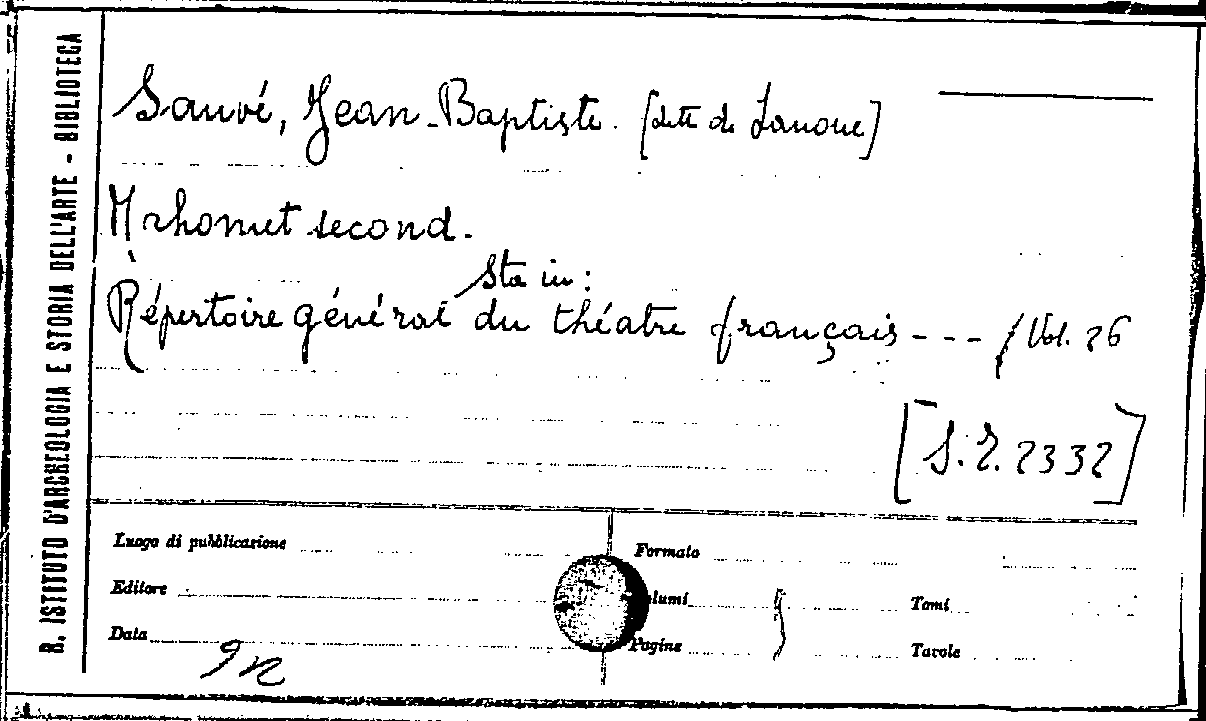 R. ISTITUTO D'ARCHEOLOGIA E STORIA DELL'ARTE - BIBLIOTECA
Sauvé, Jean-Baptiste. [dette de Lanoue]
Mahomet second.
Sta in:
Répertoire général du théatre français --- / Vol. 26
[S.T. 2332]
Luogo di pubblicazione
Formato
Editore
lumi
Tomi
Data
Pagine
Tavole